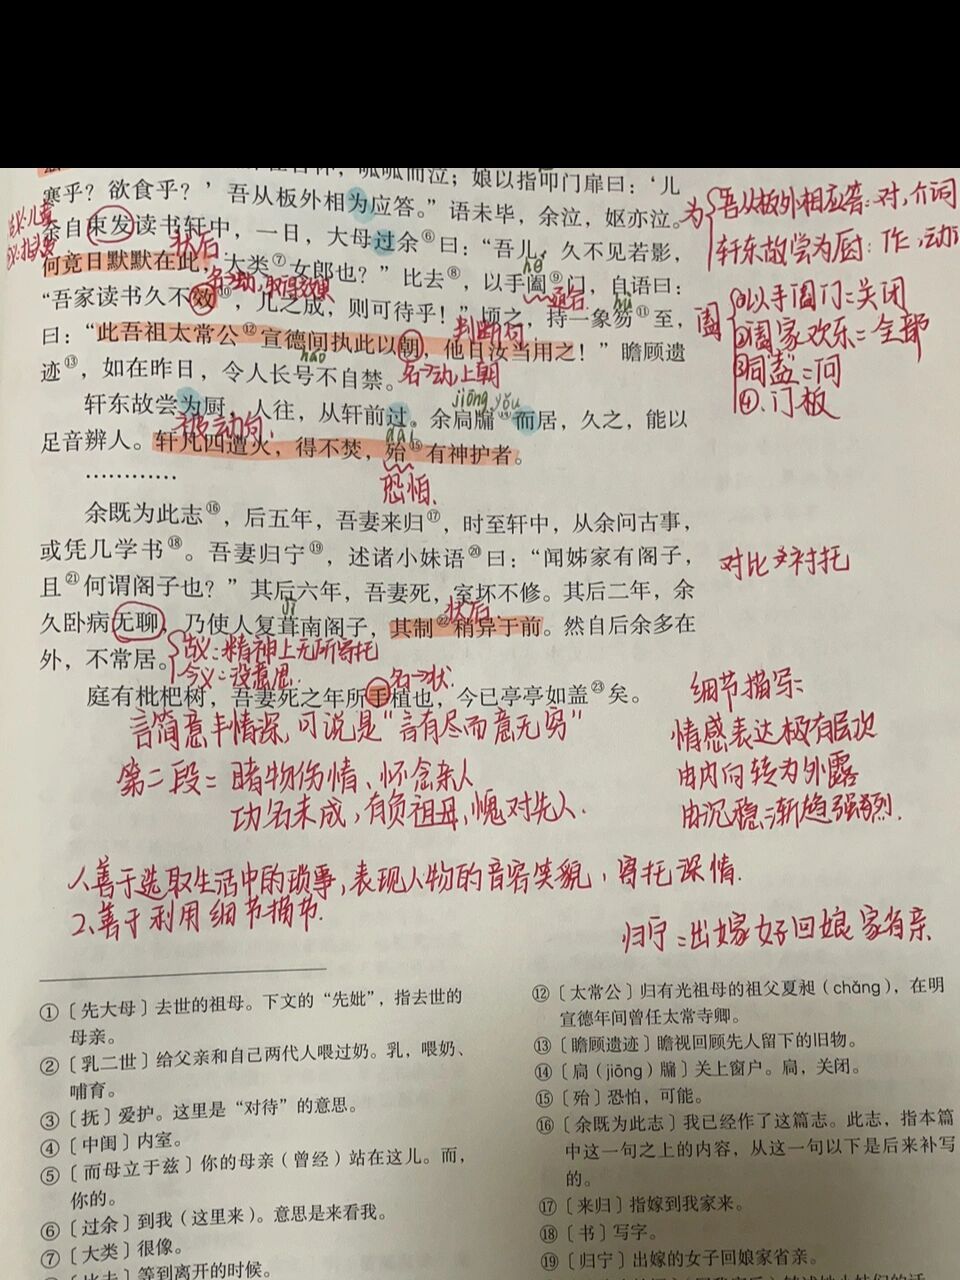 呱呱而泣；娘以指叩门扉曰：‘儿
寒乎？欲食乎？’吾从板外相为应答。”语未毕，余泣，妪亦泣。
余自束发读书轩中，一日，大母过余⑥曰：“吾儿，久不见若影，
状后
何竟日默默在此，大类⑦女郎也？”比去⑧，以手阖⑨门，自语曰：
hé
“吾家读书久不效⑩，儿之成，则可待乎！”顷之，持一象笏⑪至，
hù
判断句
曰：“此吾祖太常公⑫宣德间执此以朝，他日汝当用之！”瞻顾遗
迹⑬，如在昨日，令人长号不自禁。
háo
名→动，上朝
轩东故尝为厨，人往，从轩前过。余扃牖⑭而居，久之，能以
jiōng yǒu
被动句
足音辨人。轩凡四遭火，得不焚，殆⑮有神护者。
dài
恐怕
…………
余既为此志⑯，后五年，吾妻来归⑰，时至轩中，从余问古事，
或凭几学书⑱。吾妻归宁⑲，述诸小妹语⑳曰：“闻姊家有阁子，
且㉑何谓阁子也？”其后六年，吾妻死，室坏不修。其后二年，余
状后
久卧病无聊，乃使人复葺南阁子，其制㉒稍异于前。然自后余多在
外，不常居。
古义：精神上无所寄托
今义：没意思
名→状
庭有枇杷树，吾妻死之年所手植也，今已亭亭如盖㉓矣。
为
吾从板外相应答：对，介词
轩东故尝为厨：作，动
阖
①以手阖门：关闭
②阖家欢乐：全部
③同“盍”：何
④门板
对比又衬托
细节描写：
情感表达极有层次
由内向转为外露
由沉稳渐趋强烈.
言简意丰情深，可说是“言有尽而意无穷”
第二段：睹物伤情、怀念亲人
功名未成，有负祖母，愧对先人.
1.善于选取生活中的琐事，表现人物的音容笑貌，寄托深情.
2.善于利用细节描节.
归宁：出嫁女子回娘家省亲
①〔先大母〕去世的祖母。下文的“先妣”，指去世的
母亲。
②〔乳二世〕给父亲和自己两代人喂过奶。乳，喂奶、
哺育。
③〔抚〕爱护。这里是“对待”的意思。
④〔中闺〕内室。
⑤〔而母立于兹〕你的母亲（曾经）站在这儿。而，
你的。
⑥〔过余〕到我（这里来）。意思是来看我。
⑦〔大类〕很像。
⑧〔比去〕等到离开的时候。
⑫〔太常公〕归有光祖母的祖父夏昶（chǎng），在明
宣德年间曾任太常寺卿。
⑬〔瞻顾遗迹〕瞻视回顾先人留下的旧物。
⑭〔扃（jiōng）牖〕关上窗户。扃，关闭。
⑮〔殆〕恐怕，可能。
⑯〔余既为此志〕我已经作了这篇志。此志，指本篇
中这一句之上的内容，从这一句以下是后来补写
的。
⑰〔来归〕指嫁到我家来。
⑱〔书〕写字。
⑲〔归宁〕出嫁的女子回娘家省亲。